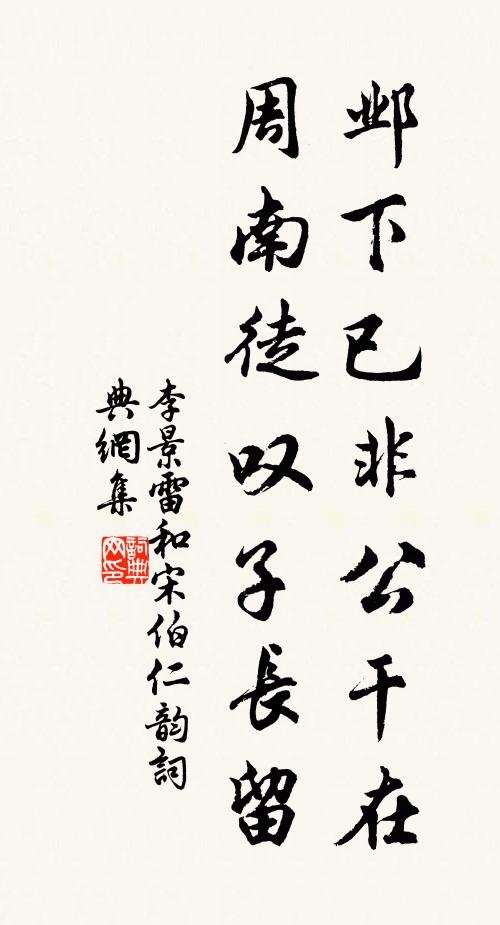 邺下已非公干在
周南徒叹子長留
李景雷和宋伯仁韵詞
典網集
詞典
网印